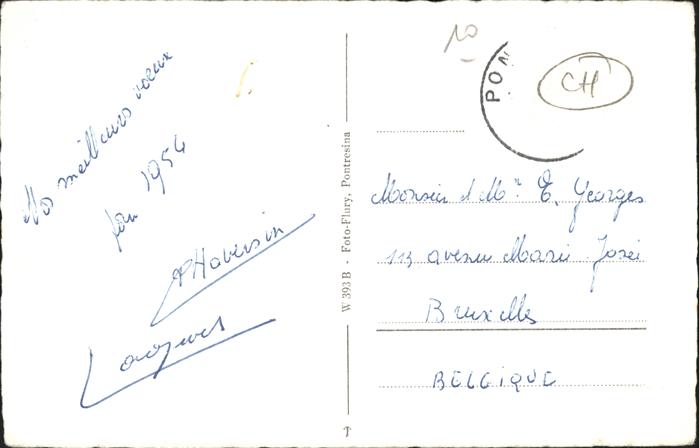 Nos meilleurs voeux
pour 1954
PHaversin
Jacques
W 393 B · Foto-Flury, Pontresina
10
PON
CH
Monsieur et Mme E. Georges
113 avenue Marie José
Bruxelles
BELGIQUE